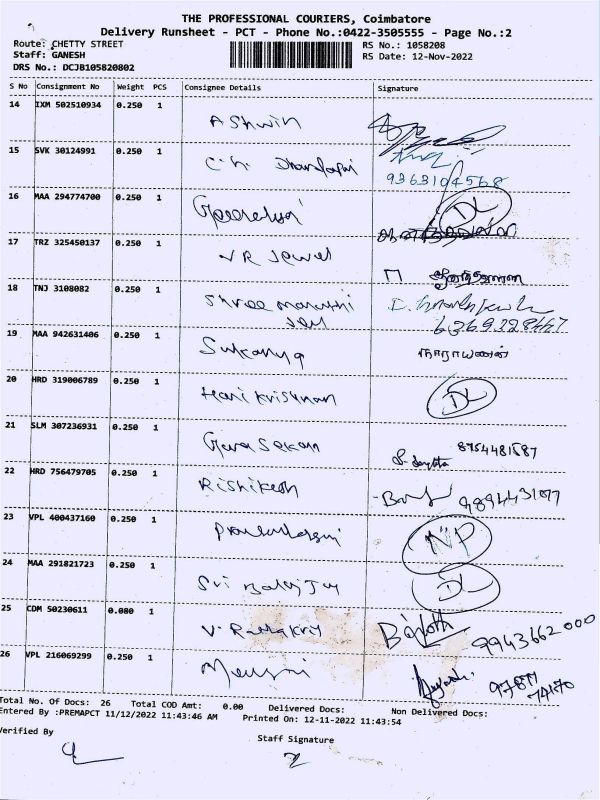 THE PROFESSIONAL COURIERS, Coimbatore
Delivery Runsheet - PCT - Phone No.:0422-3505555 - Page No.:2
Route: CHETTY STREET RS No.: 1058208
Staff: GANESH RS Date: 12-Nov-2022
DRS No.: DCJB105820802
S No Consignment No Weight PCS Consignee Details Signature
14 IXM 502510934 0.250 1 Ashwin
15 SVK 30124991 0.250 1 C.N. Dhandapni
9363104568
16 MAA 294774700 0.250 1 DL
17 TRZ 325450137 0.250 1 VR Jewel
18 TNJ 3108082 0.250 1 Shree maruthi
6369328447
19 MAA 942631406 0.250 1 Sukanya நாராயணன்
20 HRD 319006789 0.250 1 Hari Krishnan DL
21 SLM 307236931 0.250 1 8754481587
22 HRD 756479705 0.250 1 Rishikesh
23 VPL 400437160 0.250 1 NP
24 MAA 291821723 0.250 1 Sri Balaji DL
25 CDM 50230611 0.080 1 9943662000
26 VPL 216069299 0.250 1
Total No. Of Docs: 26 Total COD Amt: 0.00 Delivered Docs: Non Delivered Docs:
Entered By :PREMAPCT 11/12/2022 11:43:46 AM Printed On: 12-11-2022 11:43:54
Verified By Staff Signature